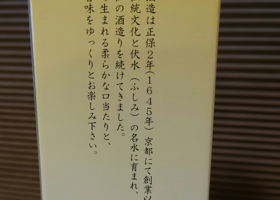 造は正保２年(１６４５年)京都にて創業以
統文化と伏水(ふしみ)の名水に育まれ、
の酒造りを続けてきました。
生まれる柔らかな口当たりと、
味をゆっくりとお楽しみ下さい。